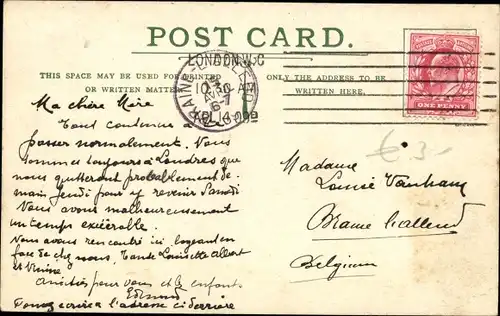 POST CARD.
THIS SPACE MAY BE USED FOR PRINTED
OR WRITTEN MATTER.
ONLY THE ADDRESS TO BE
WRITTEN HERE.
LONDON.W.C
10.30 AM
ONE PENNY
€ 3-
Ma chère Mère
Tout continue à
passer normalement. Nous
sommes toujours à Londres que
nous quitterons probablement de-
main jeudi pour y revenir Samedi
Nous avons malheureusement
un temps exécrable.
Nous avons rencontré ici, logeant en
face de chez nous, Tante Louisette Albert
et
Amitiés pour vous et les enfants
Edmond
l'adresse ci derrière
Madame
Louise
Braine l'alleud
Belgium